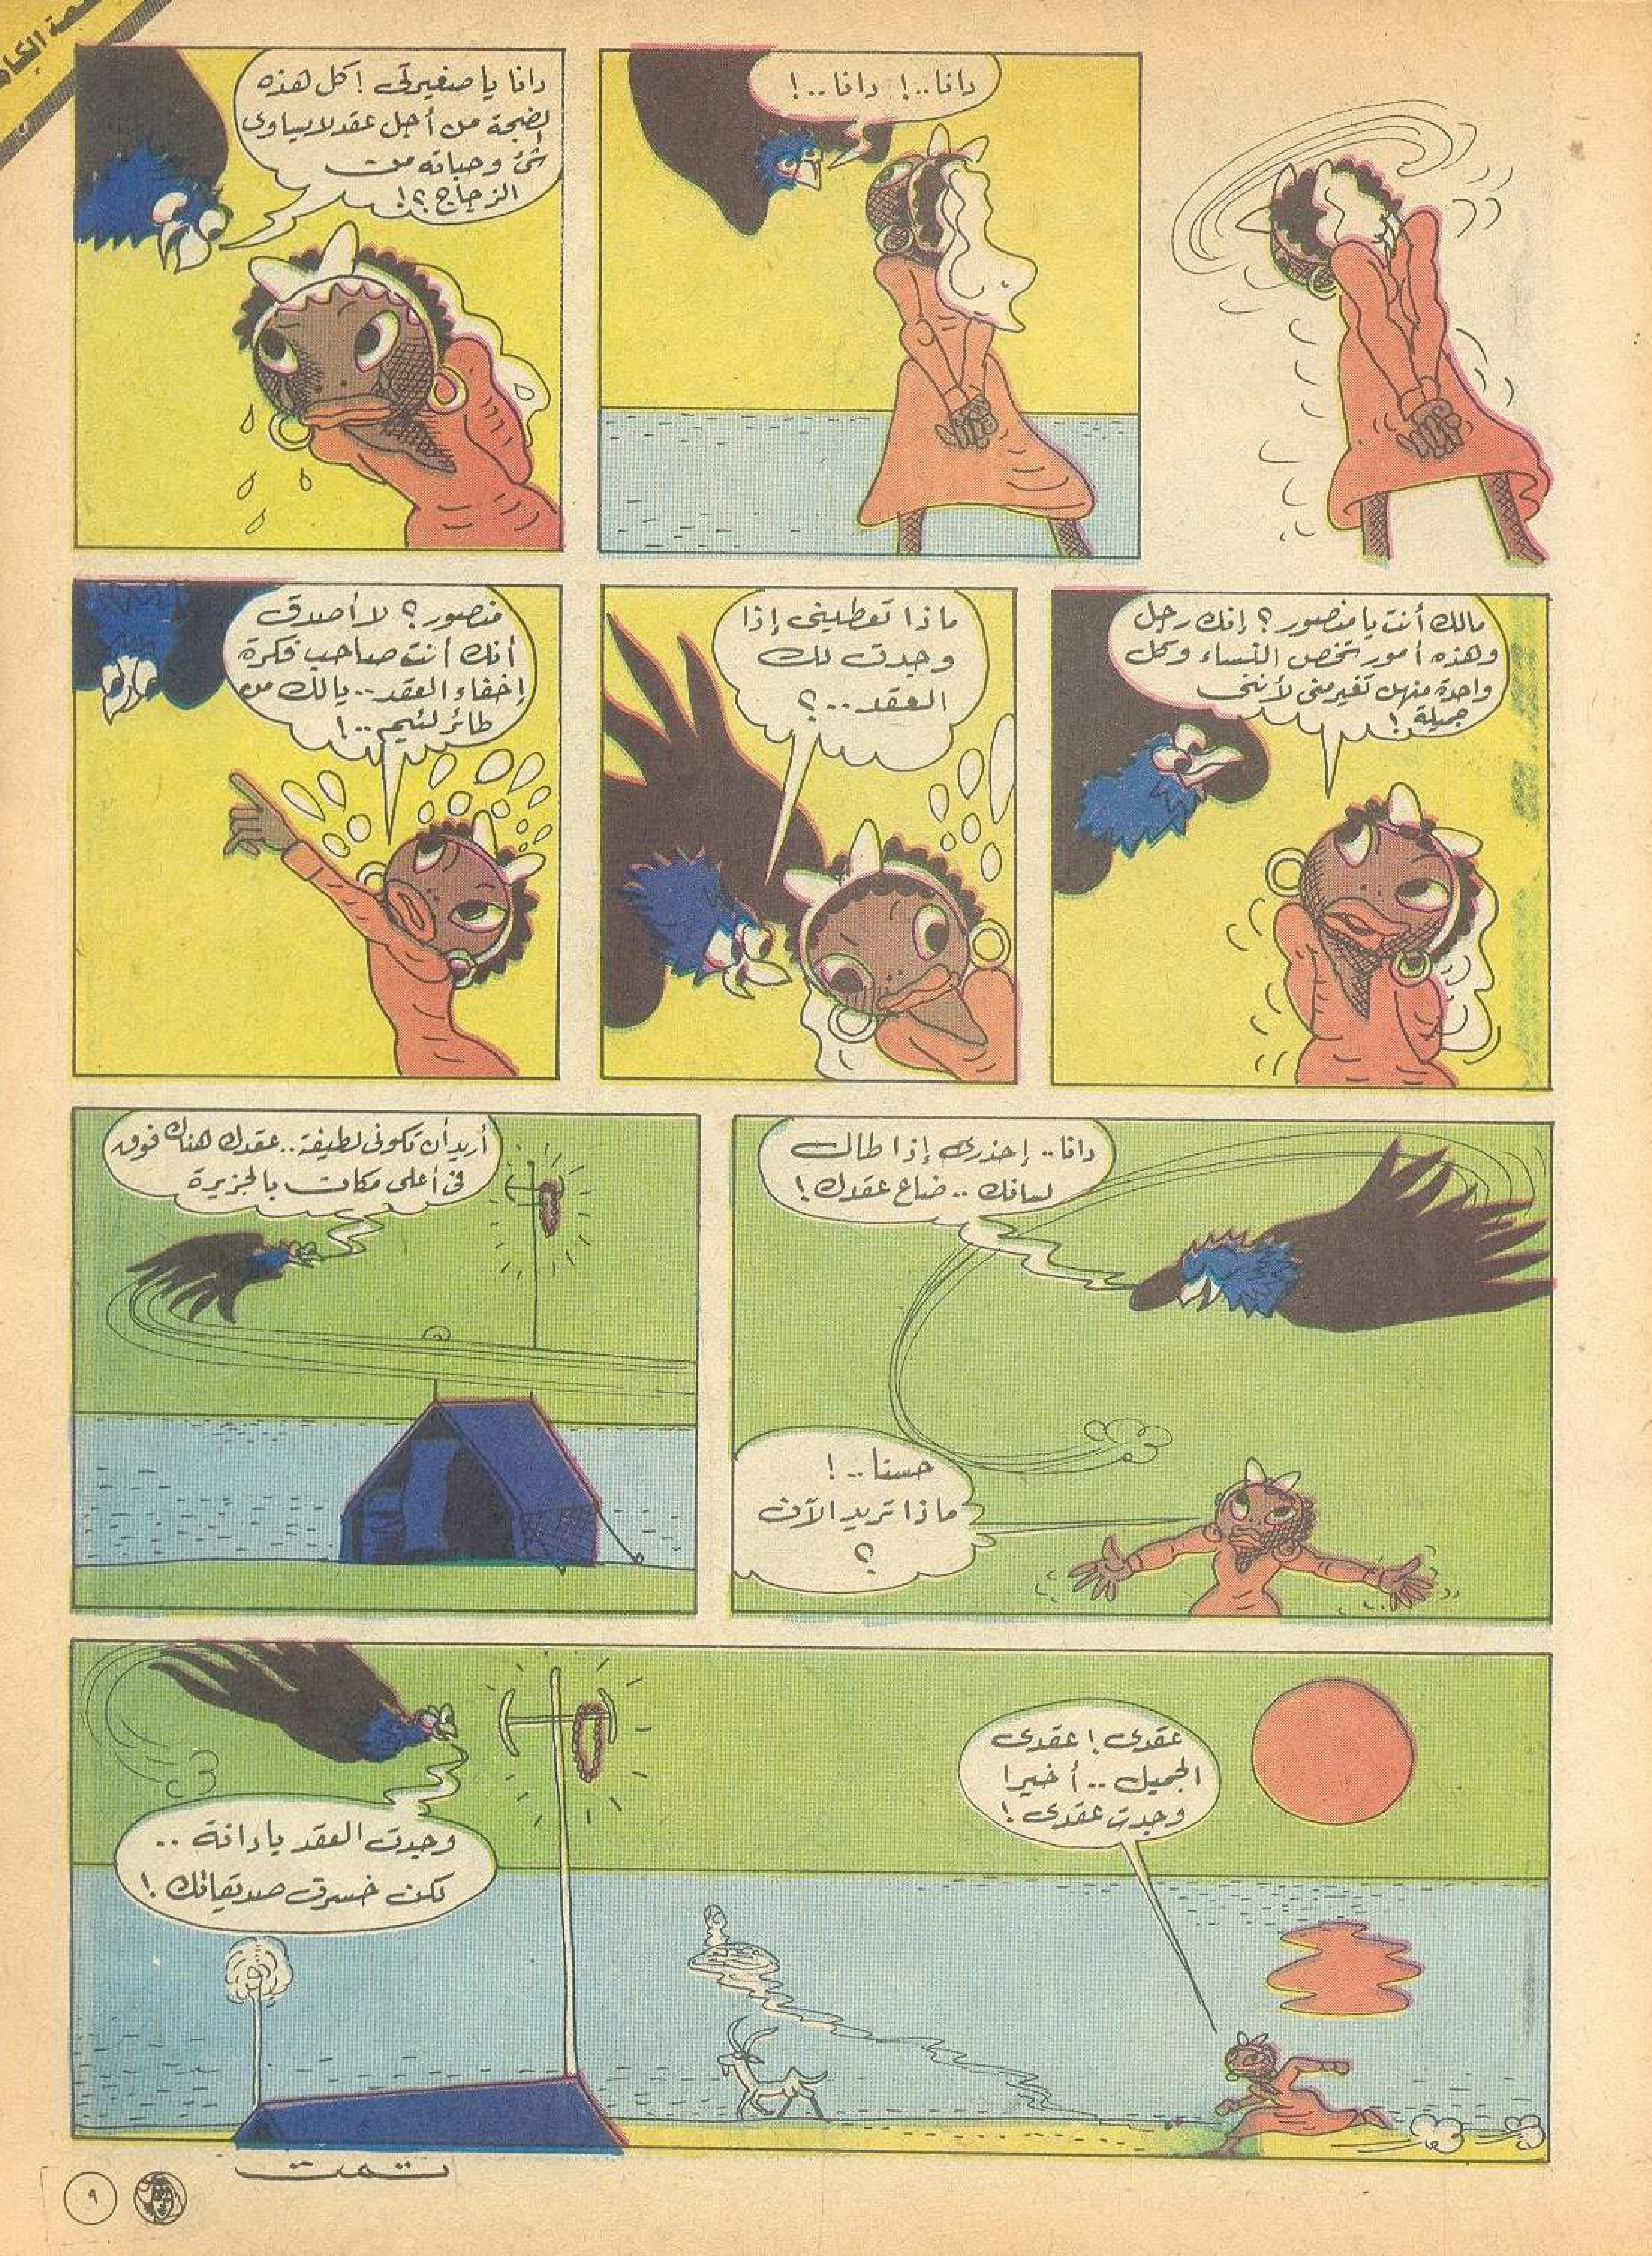 دانا..! دانا..!
دانا يا صغيرتى ! كل هذه
الضجة من أجل عقد لا يساوى
شئ وحباته من
الزجاج ؟!
مالك أنت يا منصور ؟ إنك رجل
وهذه أمور تخص النساء وكل
واحدة منهن تغير منى لأننى
جميلة !
ماذا تعطينى إذا
وجدت لك
العقد..؟
منصور ؟ لا أصدق
أنك أنت صاحب فكرة
إخفاء العقد.. يالك من
طائر لئيم..!
دانا.. إحذرى إذا طال
لسانك.. ضاع عقدك !
حسنا..!
ماذا تريد الآن
؟
أريد أن تكونى لطيفة.. عقدك هناك فوق
فى أعلى مكان بالجزيرة
عقدى ! عقدى
الجميل.. أخيرا
وجدت عقدى !
وجدت العقد يا دانة..
لكن خسرت صديقاتك !
تمت
٩